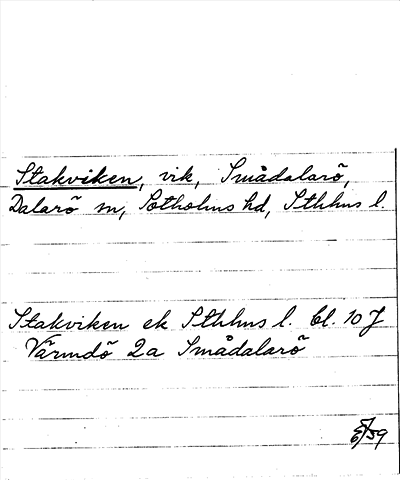 Stakviken, vik, Smådalarö,
Dalarö sn, Sotholms hd, Sthlms l.
Stakviken ek Sthlms l. bl. 10 J
Värmdö 2a Smådalarö
/59